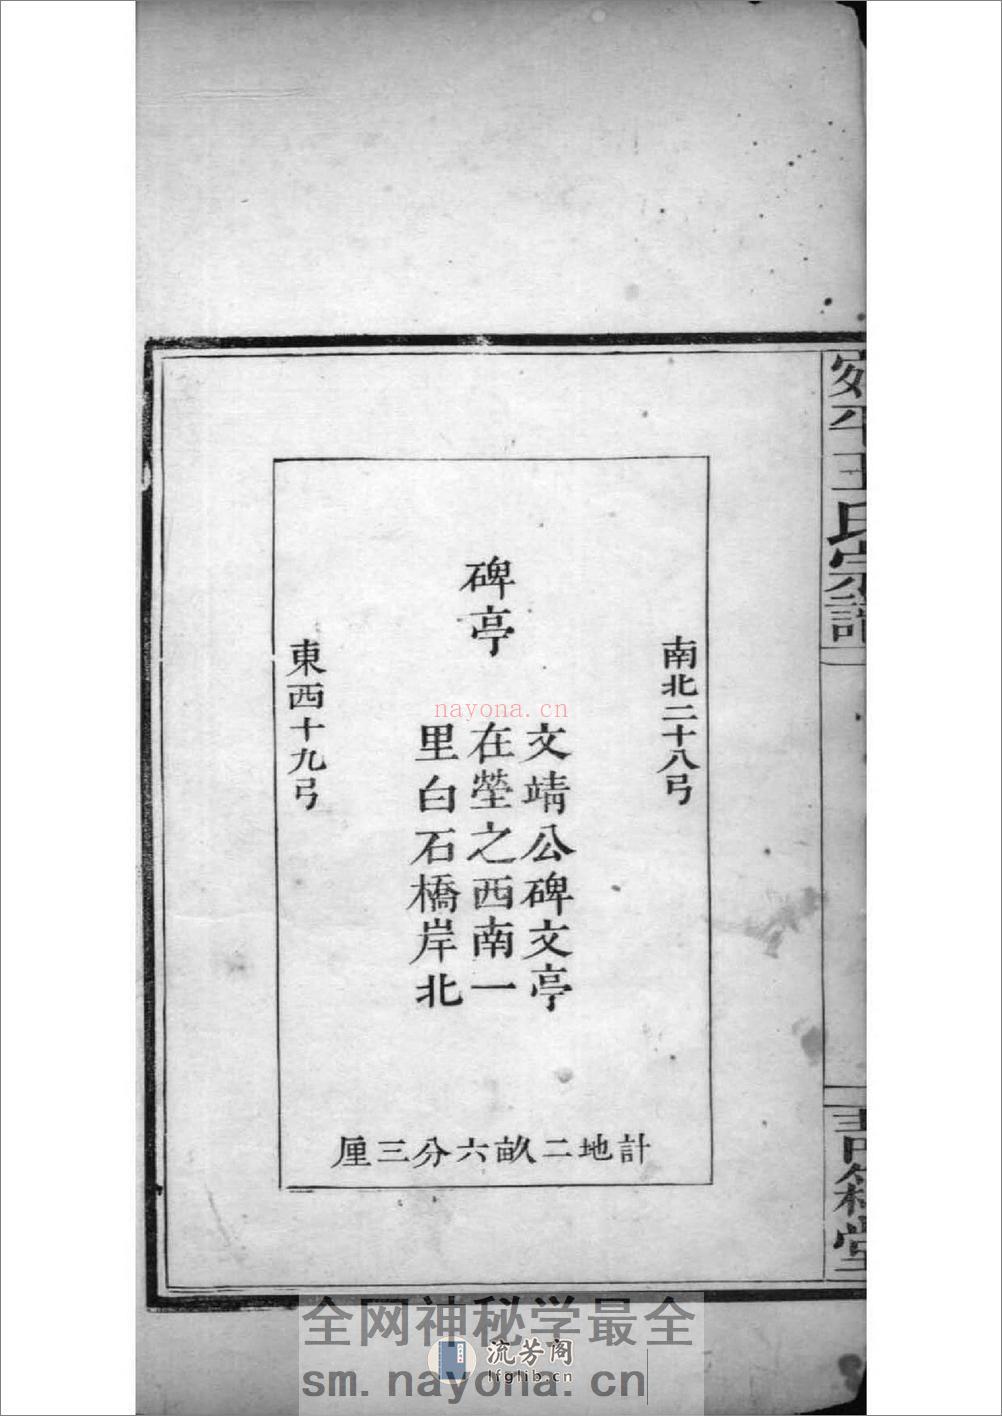 宛平王氏宗譜
青箱堂
南北二十八弓
碑亭
文靖公碑文亭
在塋之西南一
里白石橋岸北
東西十九弓
計地二畝六分三厘
nayona.cn
全网神秘学最全
流芳阁
lfglib.cn
sm.nayona.cn